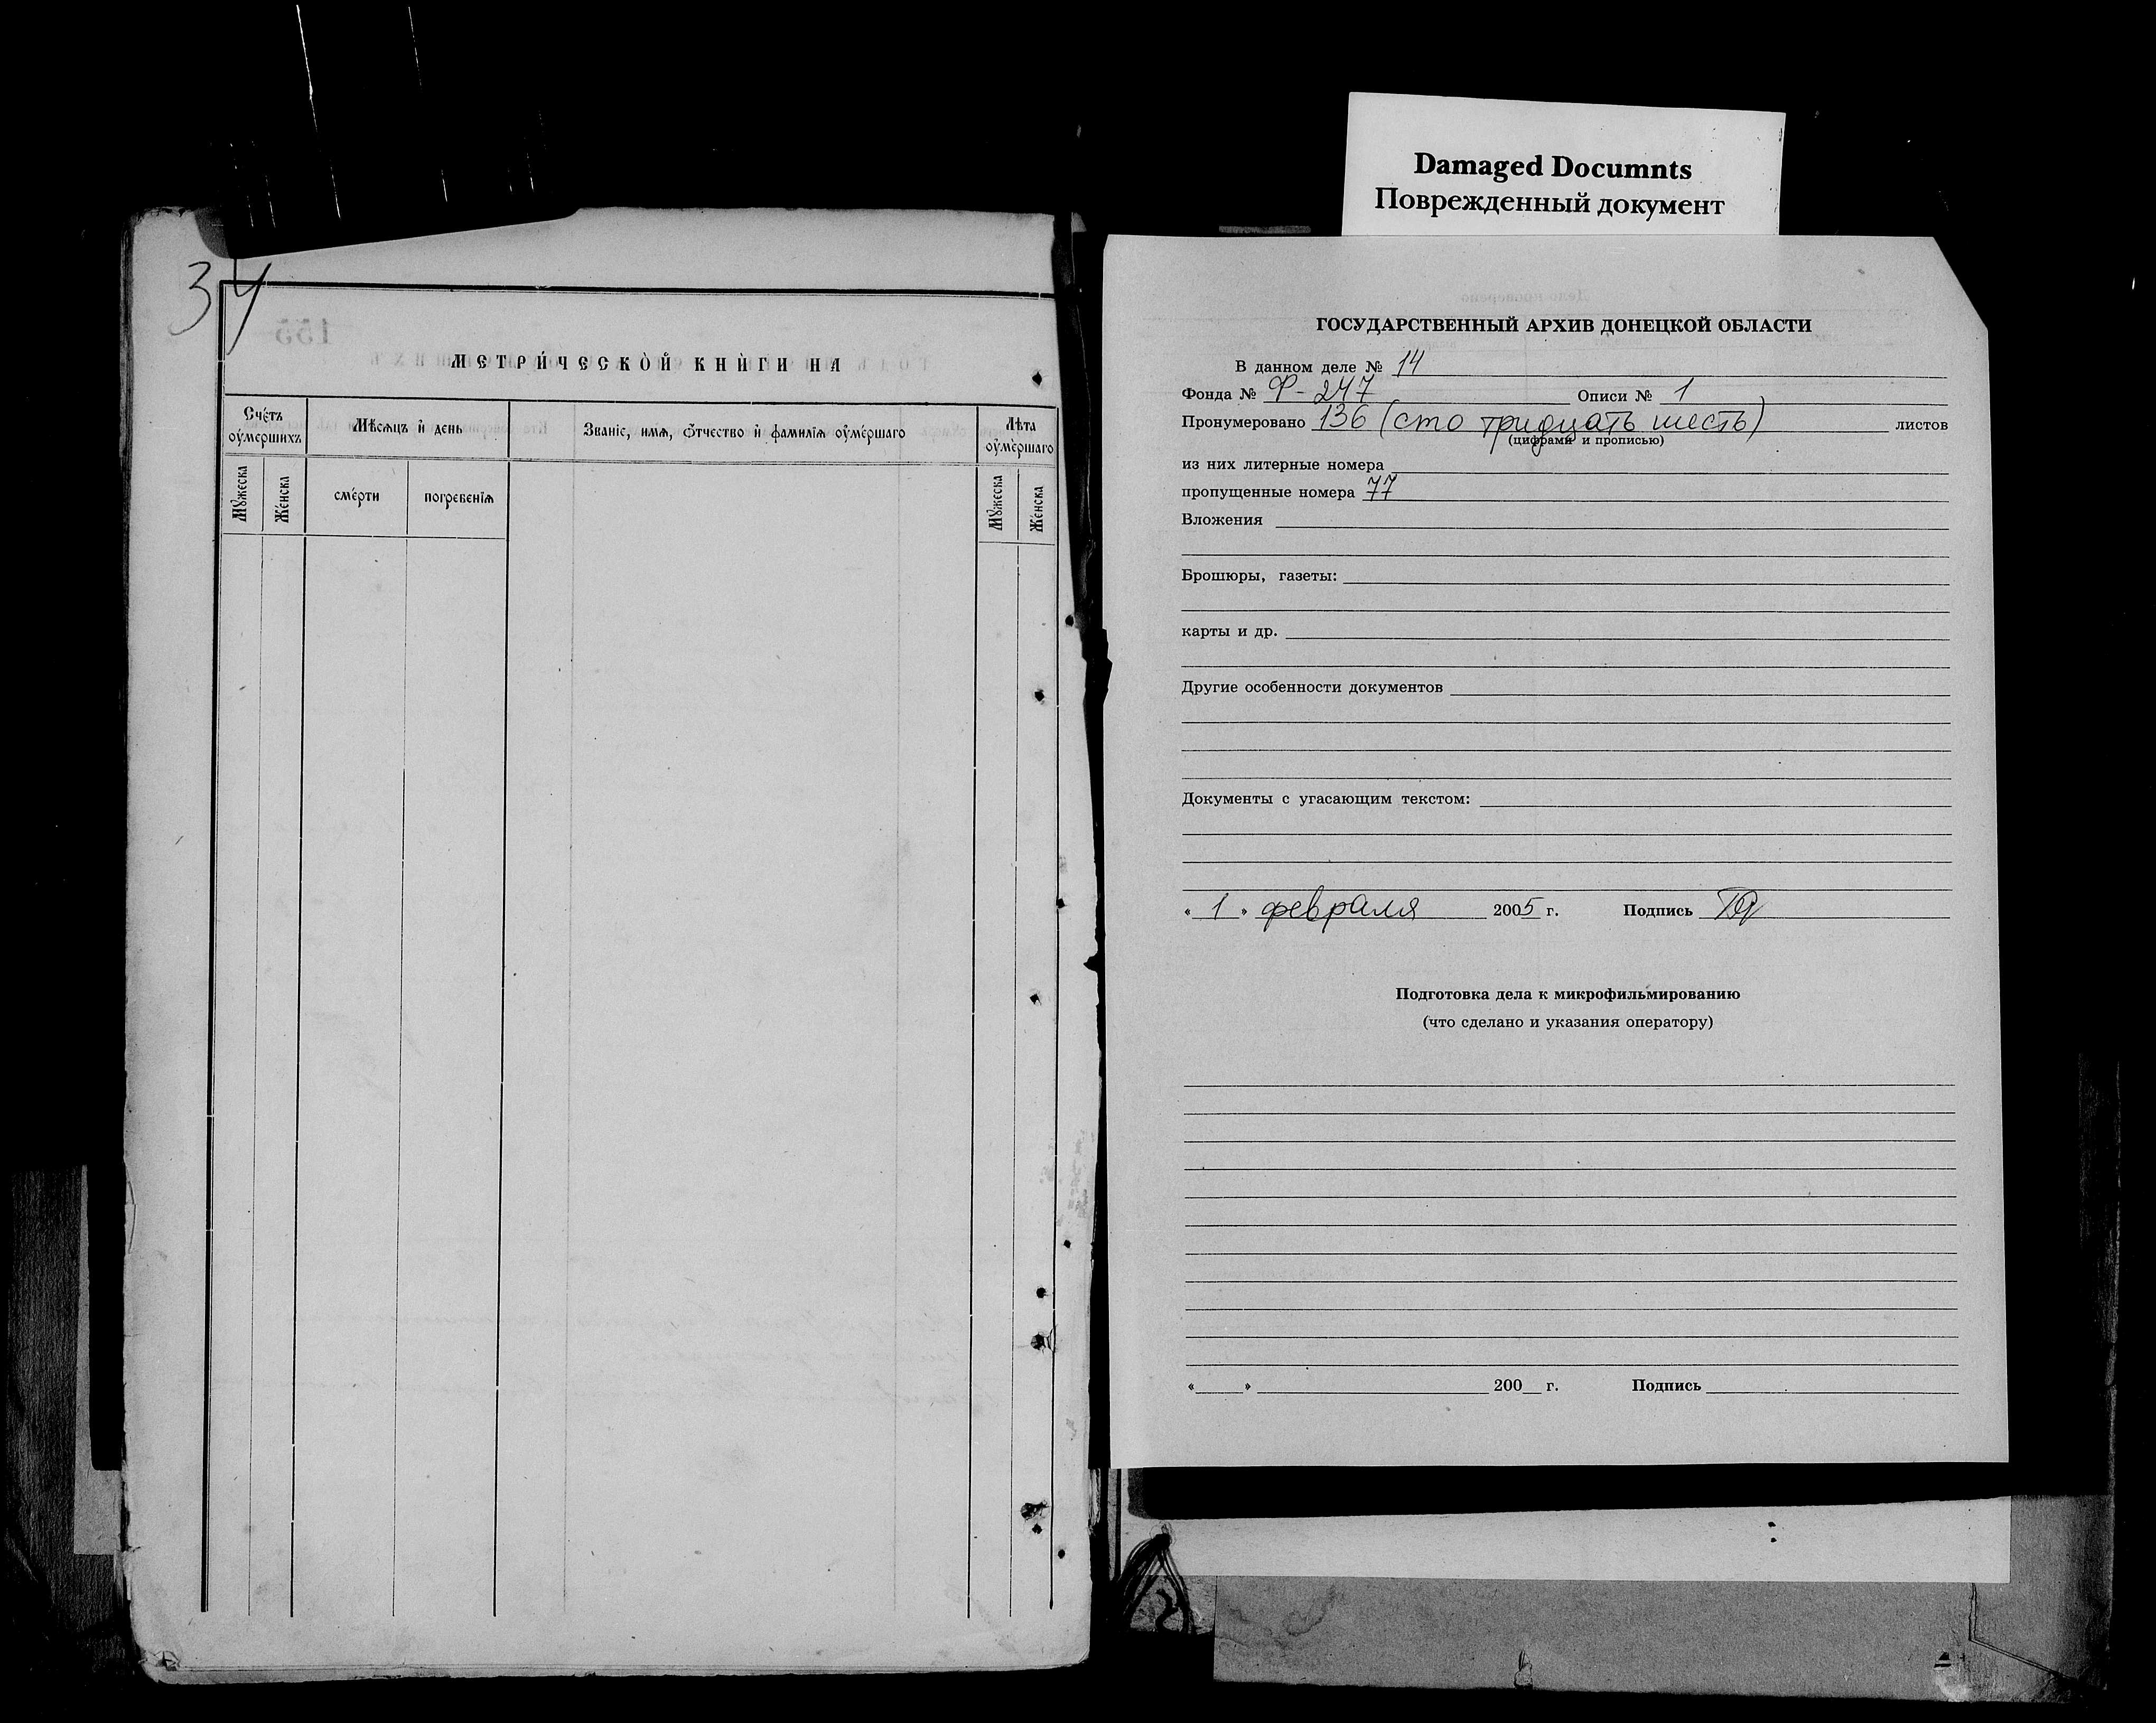 34
МЕТРИ́ЧЕСКОЙ КНИ́ГИ НА
Сче́тъ ᲂу҆ме́ршихъ
Мѣ́сѧцъ и҆ день
Зва́нїе, и҆мѧ, ѻ҆́тчество и҆ фами́лїѧ ᲂу҆ме́ршаго
Лѣ́та ᲂу҆ме́ршаго
Мꙋ́жеска
Же́нска
сме́рти
погребе́нїѧ
Мꙋ́жеска
Же́нска
Damaged Documnts
Поврежденный документ
ГОСУДАРСТВЕННЫЙ АРХИВ ДОНЕЦКОЙ ОБЛАСТИ
В данном деле № 14
Фонда № Ф-247 Описи № 1
Пронумеровано 136 (сто тридцать шесть) листов
(цифрами и прописью)
из них литерные номера
пропущенные номера 77
Вложения
Брошюры, газеты:
карты и др.
Другие особенности документов
Документы с угасающим текстом:
« 1 » февраля 2005 г. Подпись
Подготовка дела к микрофильмированию
(что сделано и указания оператору)
« » 200 г. Подпись